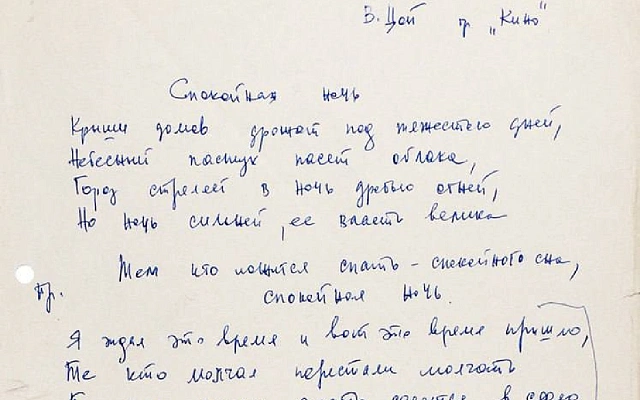 В. Цой гр „Кино"
Спокойная ночь
Крыши домов дрожат под тяжестью дней,
Небесный пастух пасет облака,
Город стреляет в ночь дробью огней,
Но ночь сильней, ее власть велика
Тем кто ложится спать – спокойного сна,
Пр. спокойная ночь.
Я ждал это время и вот это время пришло,
Те кто молчал перестали молчать